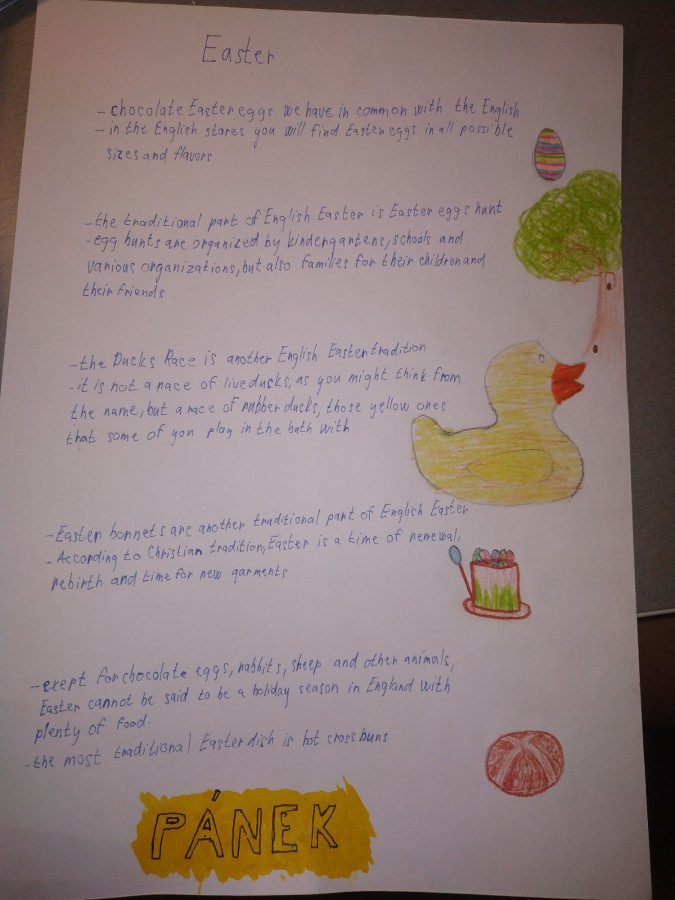 Easter
- chocolate Easter eggs we have in common with the English
- in the English stores you will find Easter eggs in all possible
sizes and flavors
- the traditional part of English Easter is Easter eggs hunt
- egg hunts are organized by kindergartens, schools and
various organizations, but also families for their children and
their friends
- the Ducks Race is another English Easter tradition
- it is not a race of live ducks, as you might think from
the name, but a race of rubber ducks, those yellow ones
that some of you play in the bath with
- Easter bonnets are another traditional part of English Easter
- According to Christian tradition, Easter is a time of renewal,
rebirth and time for new garments
- exept for chocolate eggs, rabbits, sheep and other animals,
Easter cannot be said to be a holiday season in England with
plenty of food.
- the most traditional Easter dish is hot cross buns
PÁNEK